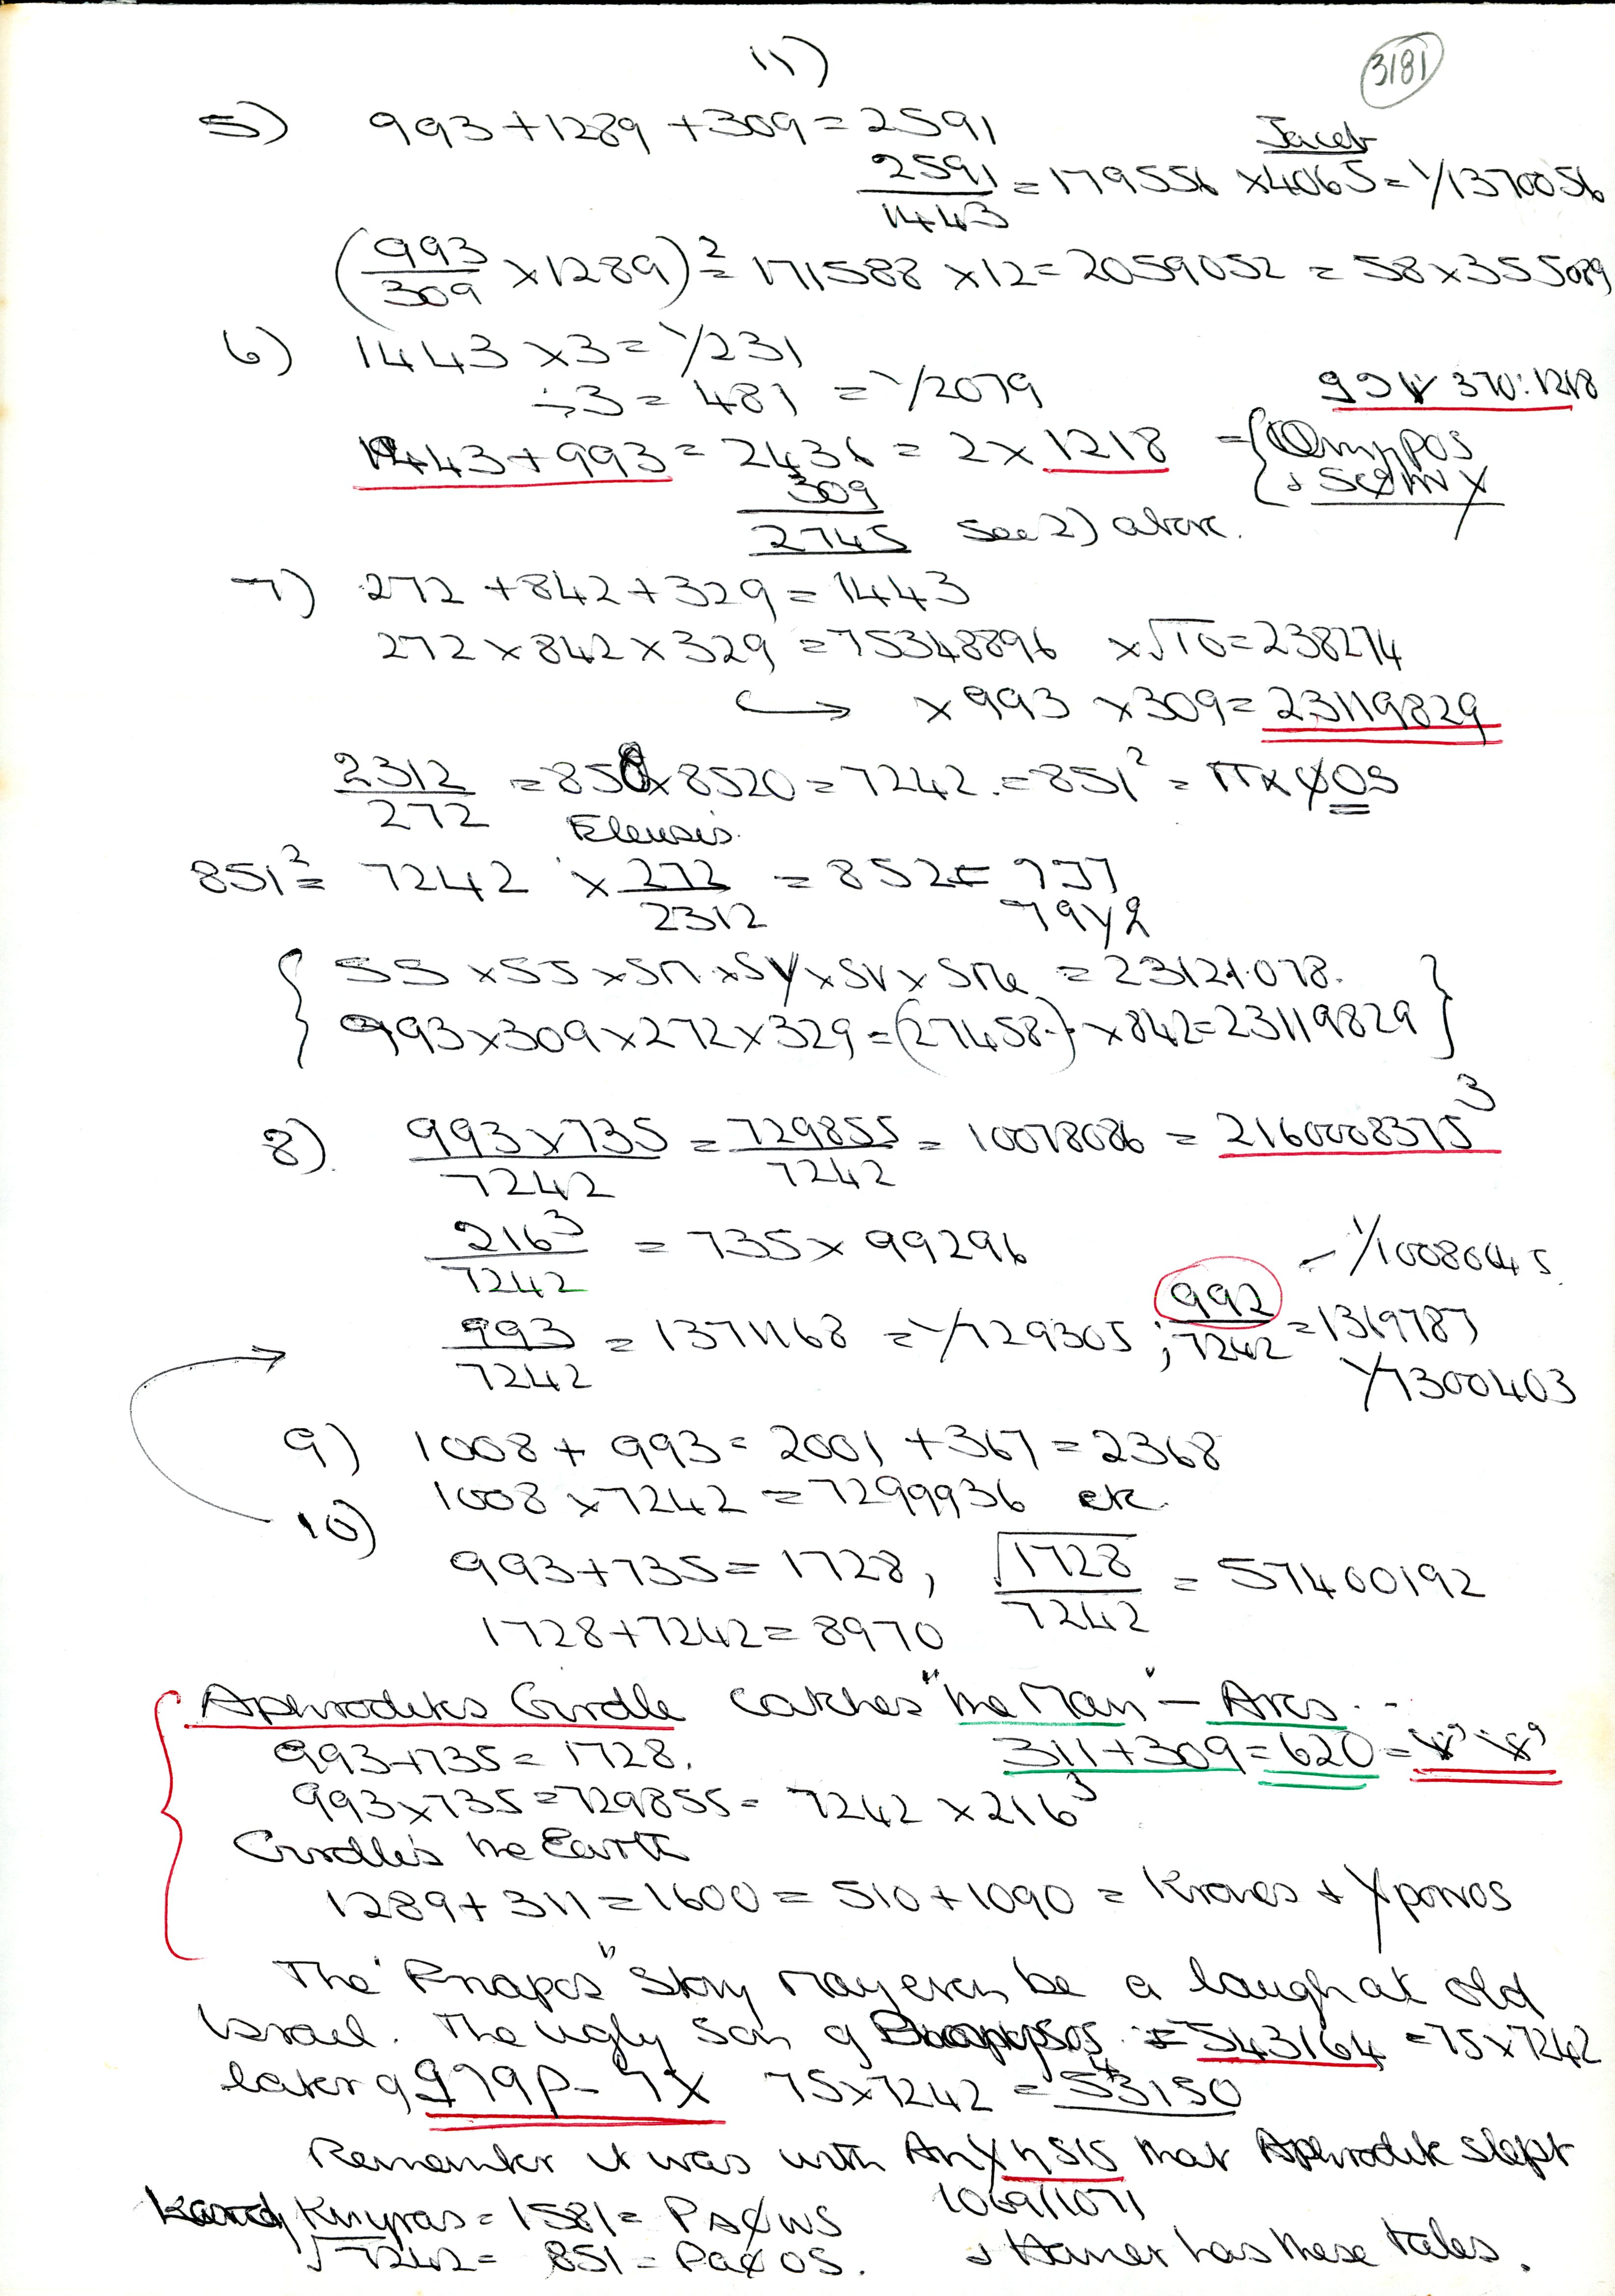 11)
3181
5) 993+1289+309=2591
Jacob
2591/1443 = 179556 ×4065= 1/1370056
(993/309 ×1289)²= 171588 ×12= 2059052 = 58×355089
6) 1443×3= 1/231
÷3= 481 = 1/2079
370:1218
1443+993= 2436= 2×1218
309
2745 See 2) above.
7) 272+842+329=1443
272×842×329=75348896 ×√10=238274
→ ×993 ×309= 23119829
2312/272 = 850 × 8520=7242.=851²=
Eleusis.
851²= 7242 × 272/2312 = 852=
= 23121.078.
993×309×272×329=(27458-)×842=23119829
8). 993×735/7242 = 729855/7242 = 10078086 = 2160008375³
216³/7242 = 735×99296
= 1/1008045.
993/7242 = 1371168 = 1/729305 ; 992/7242 = 1369787
1/7300403
9) 1008+993= 2001+367=2368
10) 1008×7242=7299936 etc.
993+735=1728, √1728/7242 = 57400192
1728+7242=8970
Aphrodite's Girdle catches "the Man" – Ares...
993+735=1728. 311+309=620=
993×735=729855= 7242×216³
Girdles the Earth
1289+311=1600=510+1090= Kronos +
The "Priapos" Story may even be a laugh at old
Israel. The ugly son of = 543164 =75×7242
later 75×7242 = 543150
Remember it was with that Aphrodite slept
1069/1071
Kinyras=1581=
√7242= 851=
+ Homer has these tales.